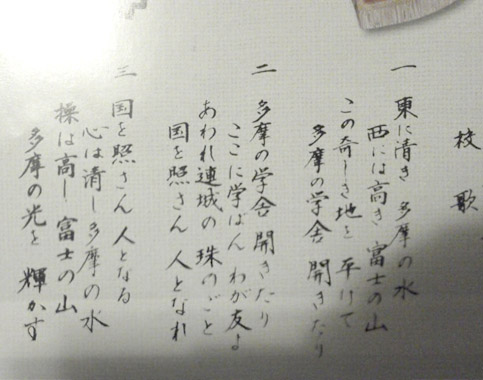 校歌
一 東に清き 多摩の水
西には高き 富士の山
この奇しき地を 平けて
多摩の学舎 開きたり
二 多摩の学舎 開きたり
ここに学ばん わが友よ
あわれ連城の 珠のごと
国を照さん 人となれ
三 国を照さん 人となる
心は清し 多摩の水
操は高し 富士の山
多摩の光を 輝かす